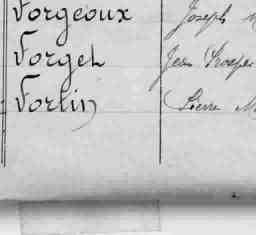 Forgeoux Joseph
Forget Jean Prosper
Fortin Pierre